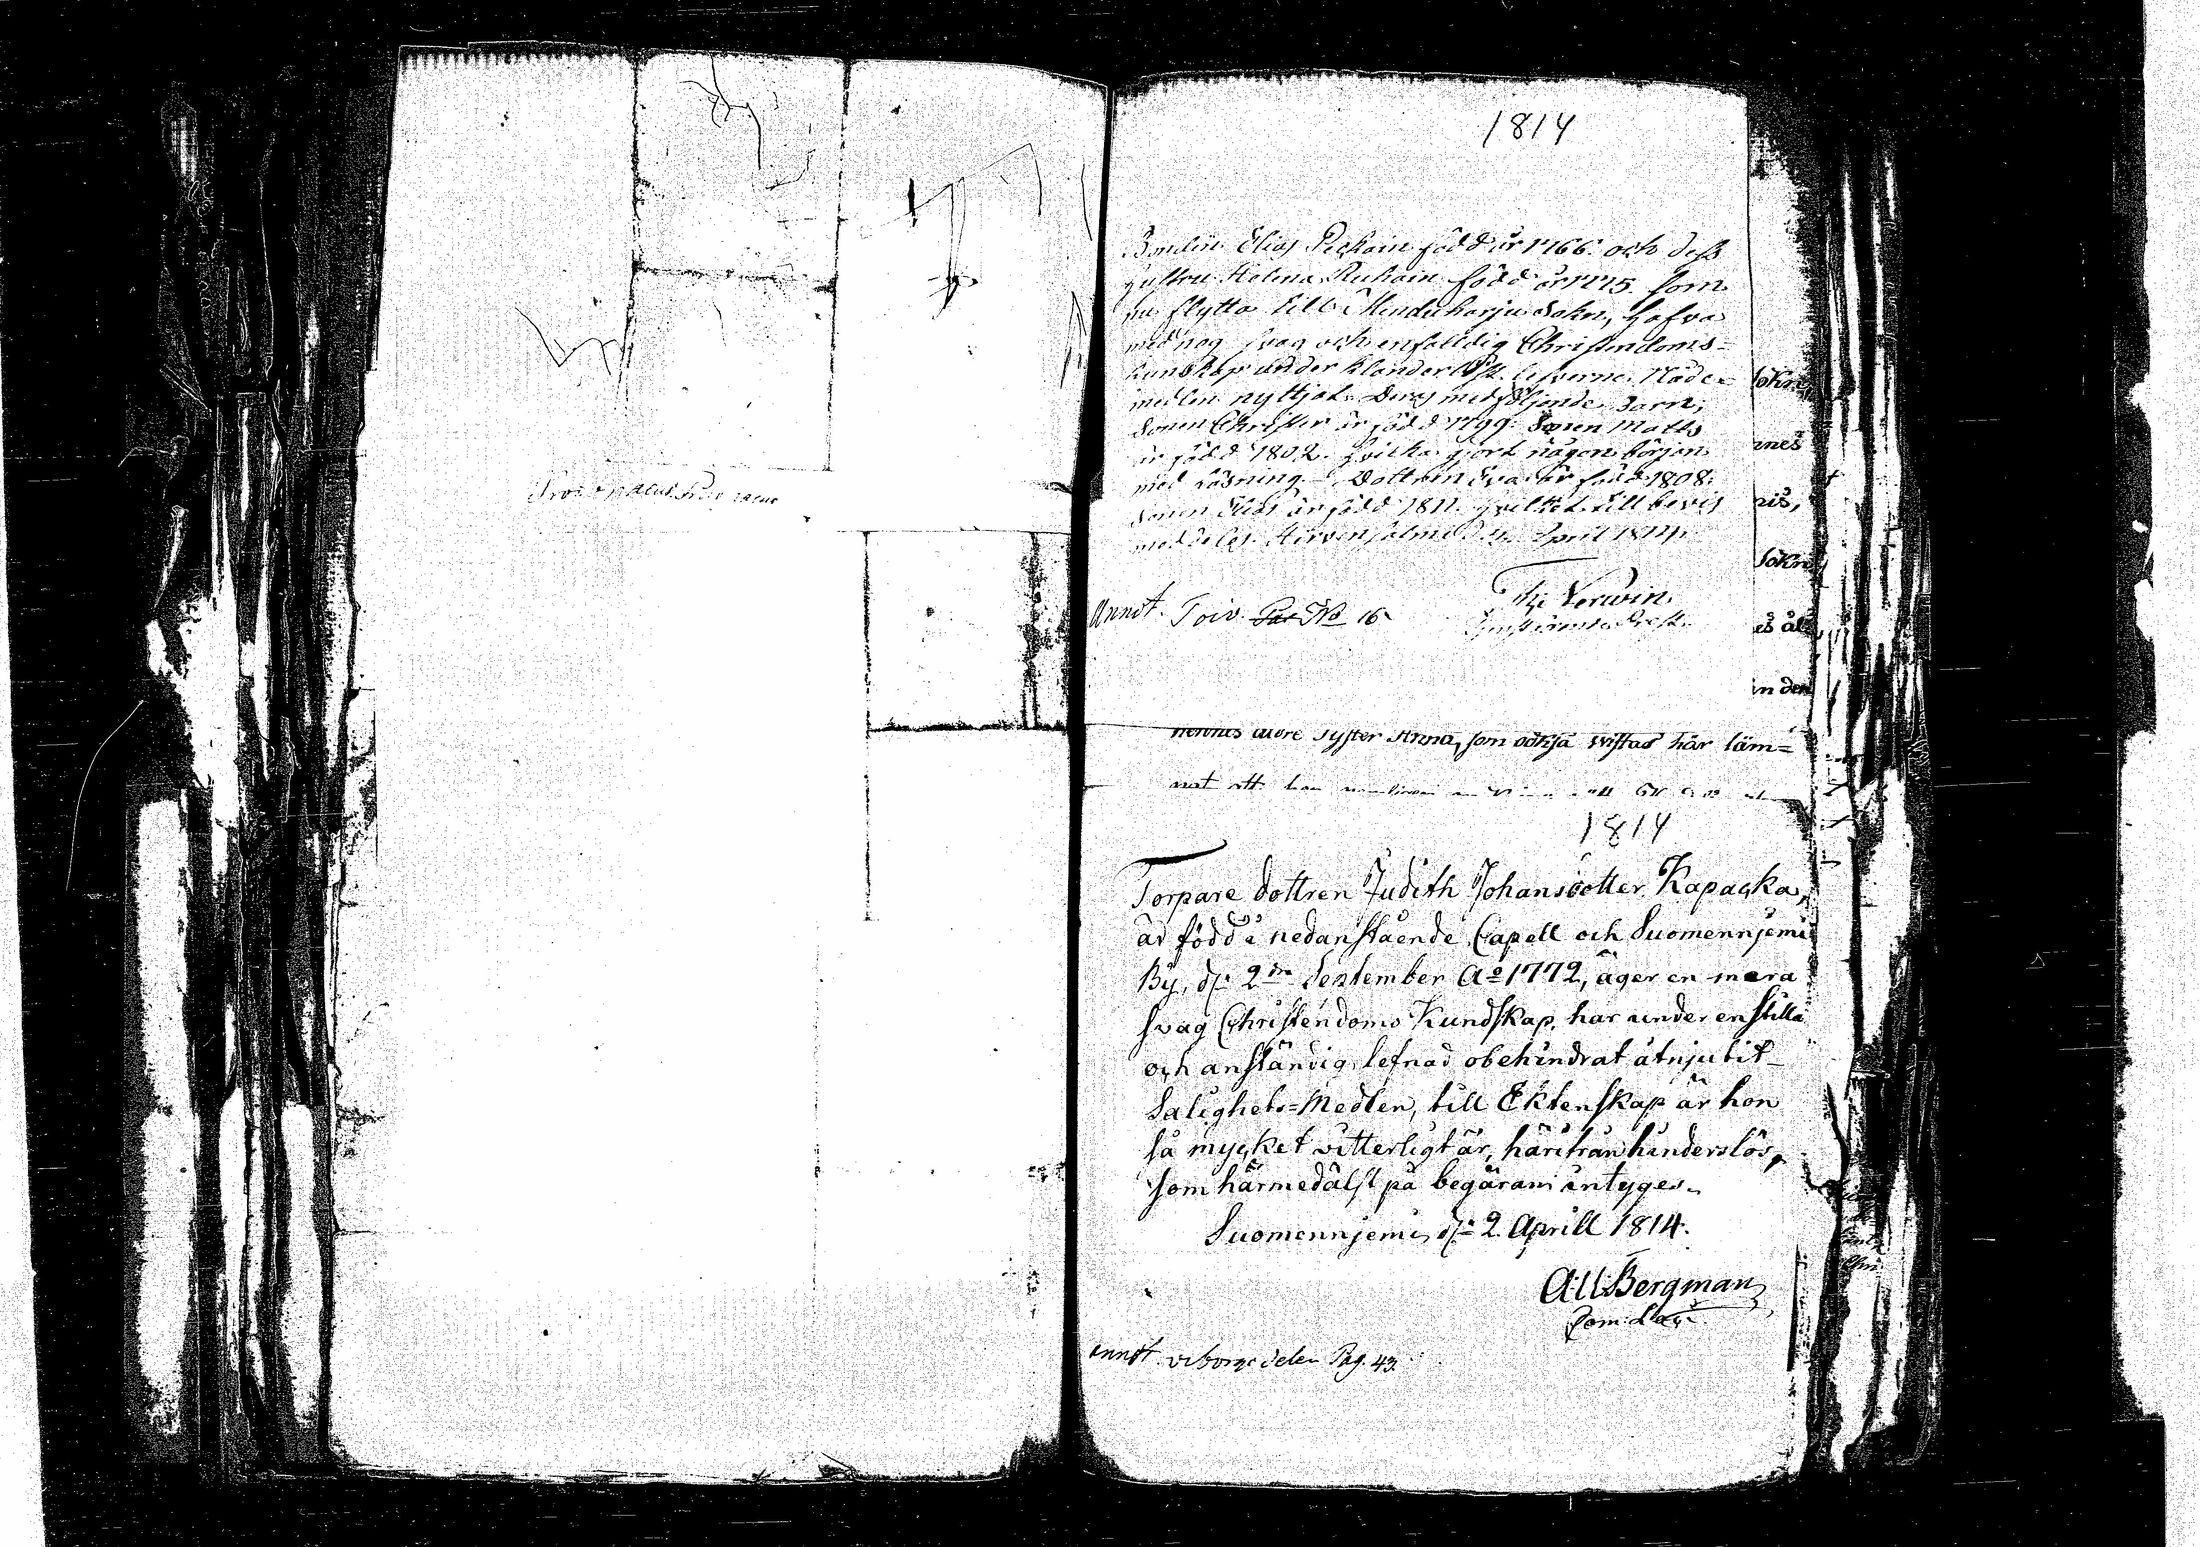 1814
Bonden Elias Pickain född år 1766. och dess
hustru Helena Ruhain född år 1775. som
nu flytta till Menduharju Sokn, hafva
med nog svag och enfaldig Christendoms=
kunskap under klander lefverne. Nåde=
medlen nyttjat. Deras medföljande barn,
Sonen Christer är född 1799. Sonen Matts
är född 1802. hvilka gjort någon början
med läsning. Dottren Eva är född 1808.
Sonen Elias är född 1811. hvilket till bevis
meddelas. Hirvensalmi d. 4. April 1814.
Annot. Toiv. Pag No 16
sokn
nnes
nis,
sokn
es äl
in den
hennes äldre syster Anna, som också vistas här läm=
nat att hon
1814
Torpare dottren Judith Johansdotter Kapacka,
är född i nedanstående Capell och Suomennjemi
By, d: 2dn September Ao 1772, äger en mera
svag Christendoms Kundskap, har under en stilla
och anständig lefnad obehindrat åtnjutit
Salighets=Medlen, till Ektenskap är hon
så mycket vitterligt är, härifrån hinderslös,
som härmedälst på begäran intyges.
Suomennjemi, d: 2. Aprill 1814.
A:U:Bergman
Com: Sac:
annot. viborgs delen Pag. 43.